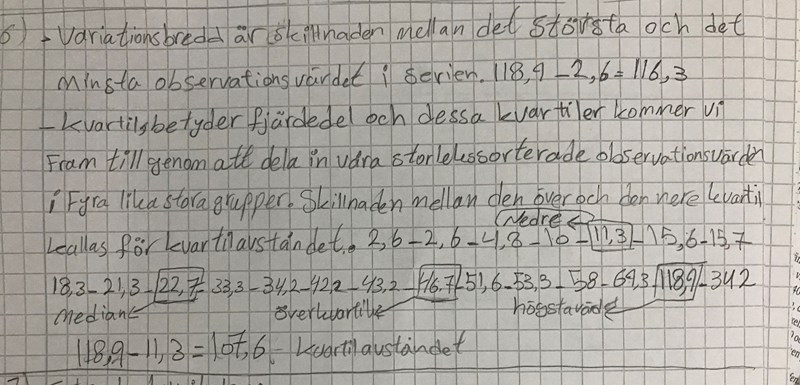 6) - Variationsbredd är skillnaden mellan det största och det
minsta observationsvärdet i serien. 118,9 - 2,6 = 116,3
- Kvartilsbetyder fjärdedel och dessa kvartiler kommer vi
Fram till genom att dela in våra storlekssorterade observationsvärden
i Fyra lika stora grupper. Skillnaden mellan den över och den nere kvartil
(Nedre ←)
kallas för kvartilavståndet. 2,6 - 2,6 - 4,8 - 10 - 11,3 - 15,6 - 15,7
18,3 - 21,3 - 22,7 - 33,3 - 34,2 - 42,2 - 43,2 - 46,7 - 51,6 - 53,3 - 58 - 69,3 - 118,9 - 342
median← överkvartil← högstavärde
118,9 - 11,3 = 107,6. kvartilavståndet